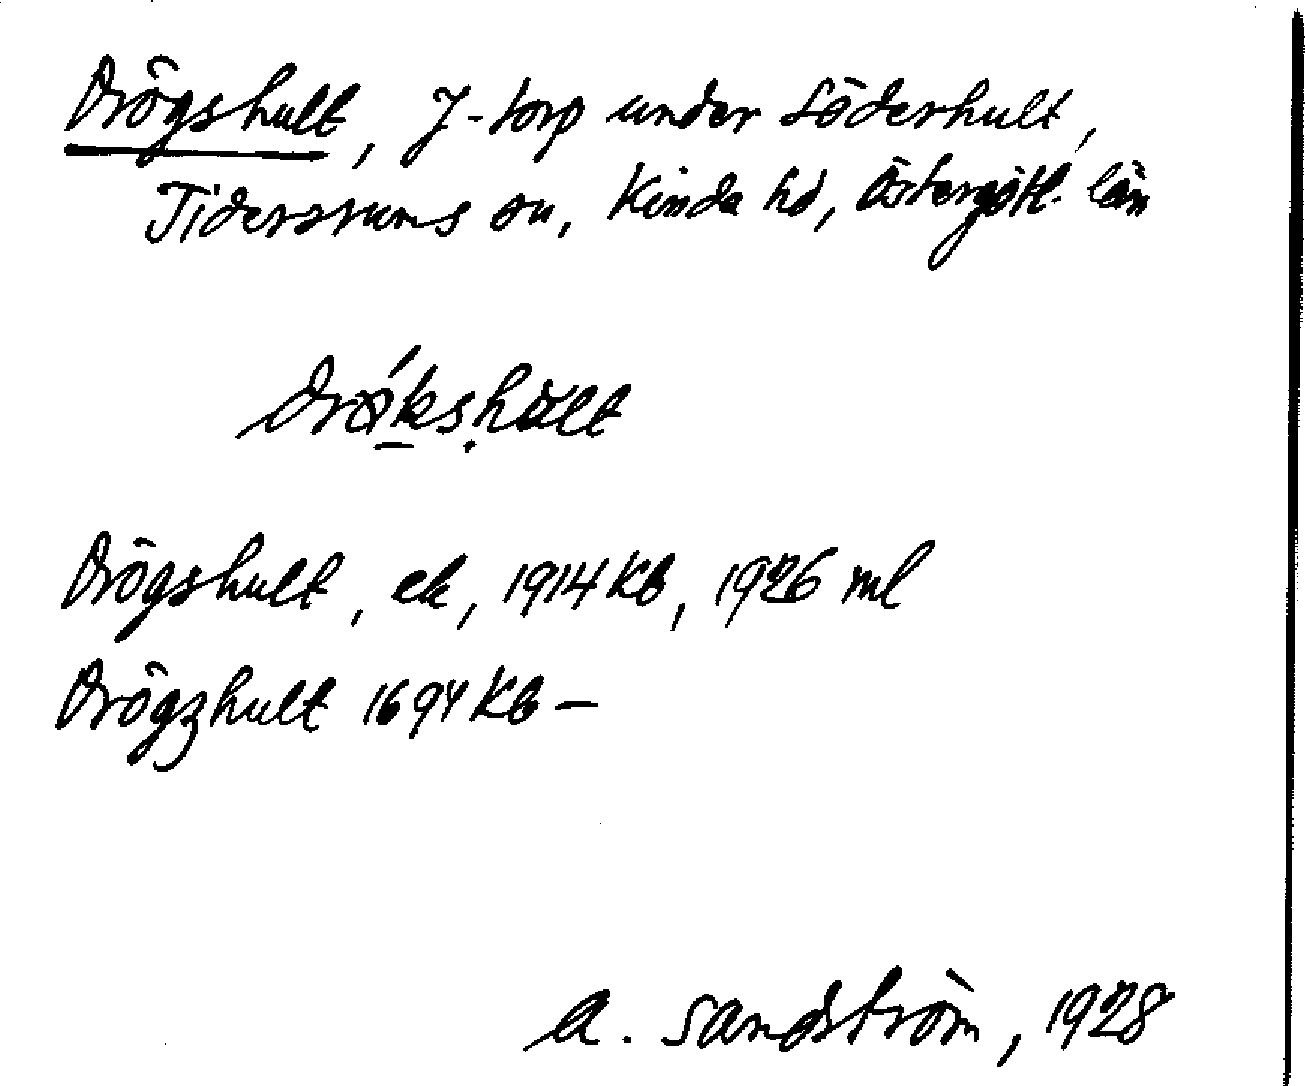 Drögshult, J-torp under Söderhult,
Tidersrums sn, Kinda hd, Östergötl. län
Drögshult, ek, 1914 Kb, 1926 ml
Drögzhult 1694 Kb —
A. Sandström, 1928